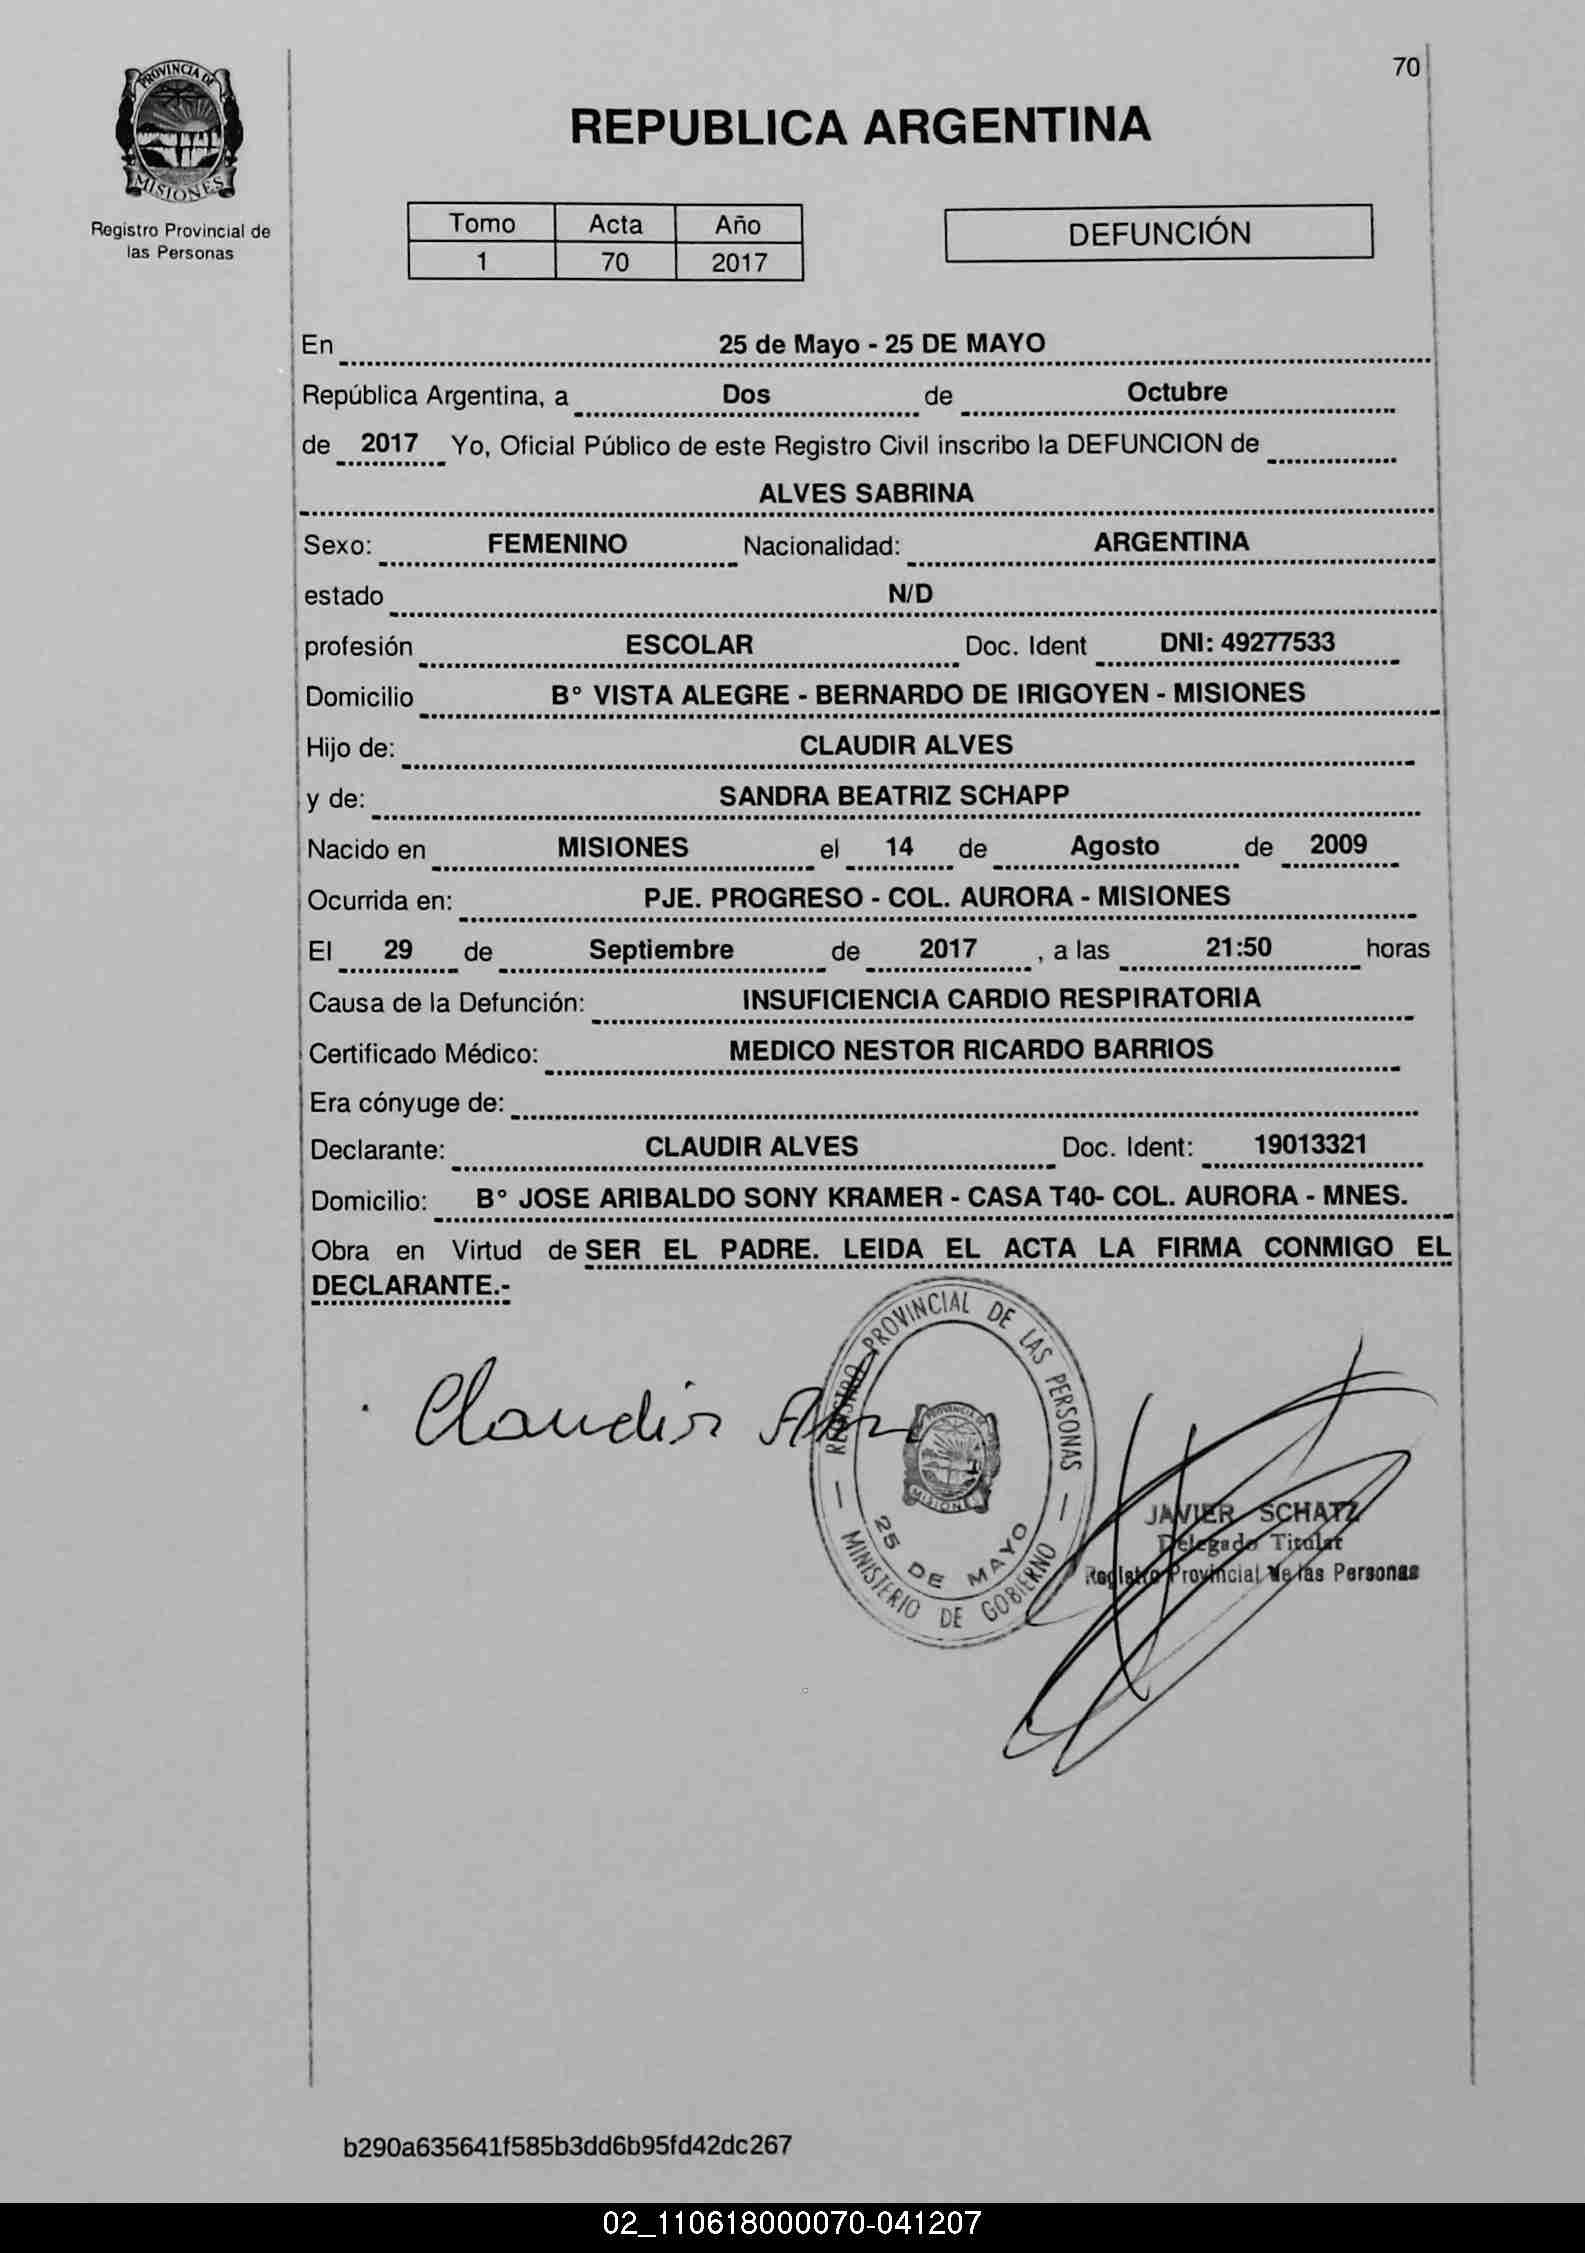 70
PROVINCIA DE
MISIONES
Registro Provincial de
las Personas
REPUBLICA ARGENTINA
Tomo Acta Año
1 70 2017
DEFUNCIÓN
En 25 de Mayo - 25 DE MAYO
República Argentina, a Dos de Octubre
de 2017 Yo, Oficial Público de este Registro Civil inscribo la DEFUNCION de
ALVES SABRINA
Sexo: FEMENINO Nacionalidad: ARGENTINA
estado N/D
profesión ESCOLAR Doc. Ident DNI: 49277533
Domicilio B° VISTA ALEGRE - BERNARDO DE IRIGOYEN - MISIONES
Hijo de: CLAUDIR ALVES
y de: SANDRA BEATRIZ SCHAPP
Nacido en MISIONES el 14 de Agosto de 2009
Ocurrida en: PJE. PROGRESO - COL. AURORA - MISIONES
El 29 de Septiembre de 2017 , a las 21:50 horas
Causa de la Defunción: INSUFICIENCIA CARDIO RESPIRATORIA
Certificado Médico: MEDICO NESTOR RICARDO BARRIOS
Era cónyuge de:
Declarante: CLAUDIR ALVES Doc. Ident: 19013321
Domicilio: B° JOSE ARIBALDO SONY KRAMER - CASA T40- COL. AURORA - MNES.
Obra en Virtud de SER EL PADRE. LEIDA EL ACTA LA FIRMA CONMIGO EL
DECLARANTE.-
Claudir
REGISTRO PROVINCIAL DE LAS PERSONAS
PROVINCIA DE
MISIONES
25 DE MAYO
MINISTERIO DE GOBIERNO
JAVIER SCHATZ
Delegado Titular
Registro Provincial de las Personas
b290a635641f585b3dd6b95fd42dc267
02_110618000070-041207